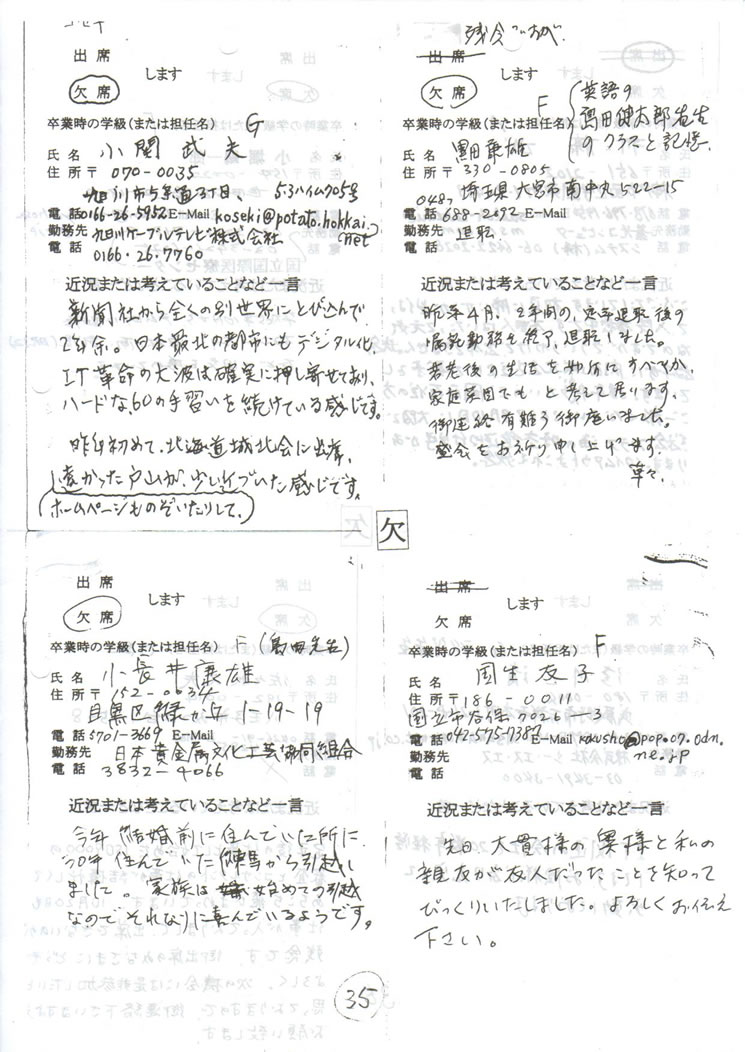 出席
します
欠席
卒業時の学級(または担任名) G
氏名 小関武夫
住所 〒 070-0035
旭川市5条通3丁目、 53ハイム705号
電話 0166-26-5952 E-Mail koseki@potato.hokkai.net
勤務先 旭川ケーブルテレビ株式会社
電話 0166・26・7760
近況または考えていることなど一言
新聞社から全くの別世界にとび込んで
2年余。日本最北の都市にもデジタル化、
IT革命の大波は確実に押し寄せており、
ハードな、60の手習いを続けている感じです。
昨年初めて、北海道城北会に出席、
遠かった戸山が、少し近づいた感じです。
(ホームページものぞいたりして。)
残念ですが
出席
します
欠席
卒業時の学級(または担任名) F
英語の
島田健太郎先生
のクラスと記憶。
氏名
住所 〒 330-0805
埼玉県大宮市南中丸522-15
電話 048, 688-2692 E-Mail
勤務先 退職
電話
近況または考えていることなど一言
昨年4月、2年間の、定年退職後の
嘱託勤務を終了、退職しました。
老後の生活を如何にすべきか、
家庭菜園でもと考えて居ります。
御連絡有難う御座いました。
盛会をお祈り申し上げます。
草々、
欠
出席
します
欠席
卒業時の学級(または担任名) F (島田先生)
氏名 小長井廣雄
住所 〒 152-0034
目黒区緑が丘 1-19-19
電話 5701-3669 E-Mail
勤務先 日本貴金属文化工芸協同組合
電話 3832-4066
近況または考えていることなど一言
今年 結婚前に住んでいた所に
30年住んでいた練馬から引越し
ました。家族は始めての引越
なので それなりに喜んでいるようです。
出席
します
欠席
卒業時の学級(または担任名) F
氏名 国生友子
住所 〒 186-0011
国立市谷保7026-1-3
電話 042-575-7387 E-Mail kokusho@pop.07.odn.ne.jp
勤務先
電話
近況または考えていることなど一言
先日 大貫様の奥様と私の
親友が友人だったことを知って
びっくりいたしました。よろしくお伝え
下さい。
35